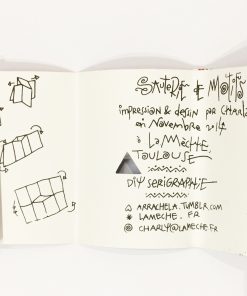 SAUTERELLE & MOTIFS
impression & dessin par CHARLY
en Novembre 2014
à LA MÈCHE
TOULOUSE
DIY SERIGRAPHIE
ARRACHELA.TUMBLR.COM
LAMECHE.FR
CHARLY@LAMECHE.FR